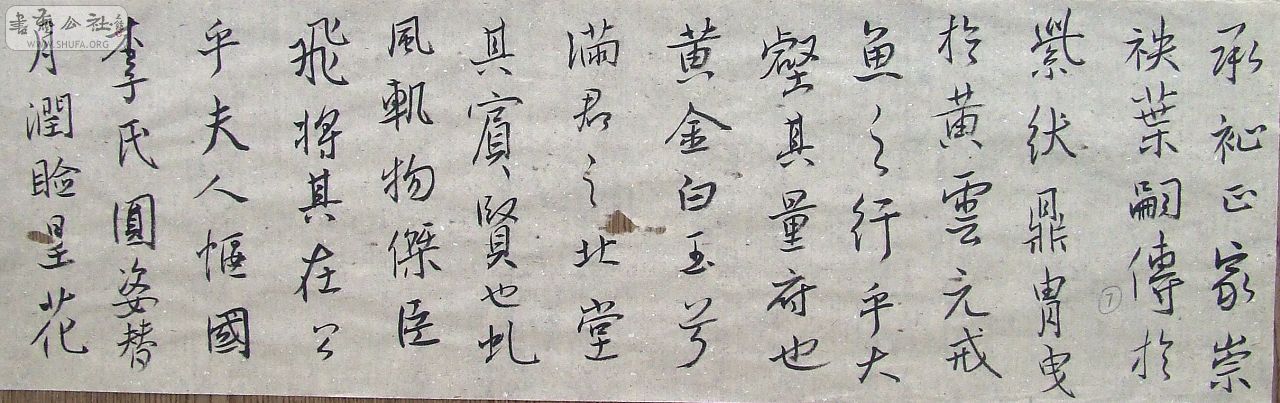 承祉正家崇
袟葉嗣傳於
紫紱鼎胄曳
於黄雲元戎
魚之行乎大
壑其量府也
黄金白玉兮
滿君之北堂
其賓賢也虬
風軌物傑臣
飛將其在公
乎夫人愜國
李氏圓姿替
月潤臉呈花
⑦
書法公社
WWW.SHUFA.ORG